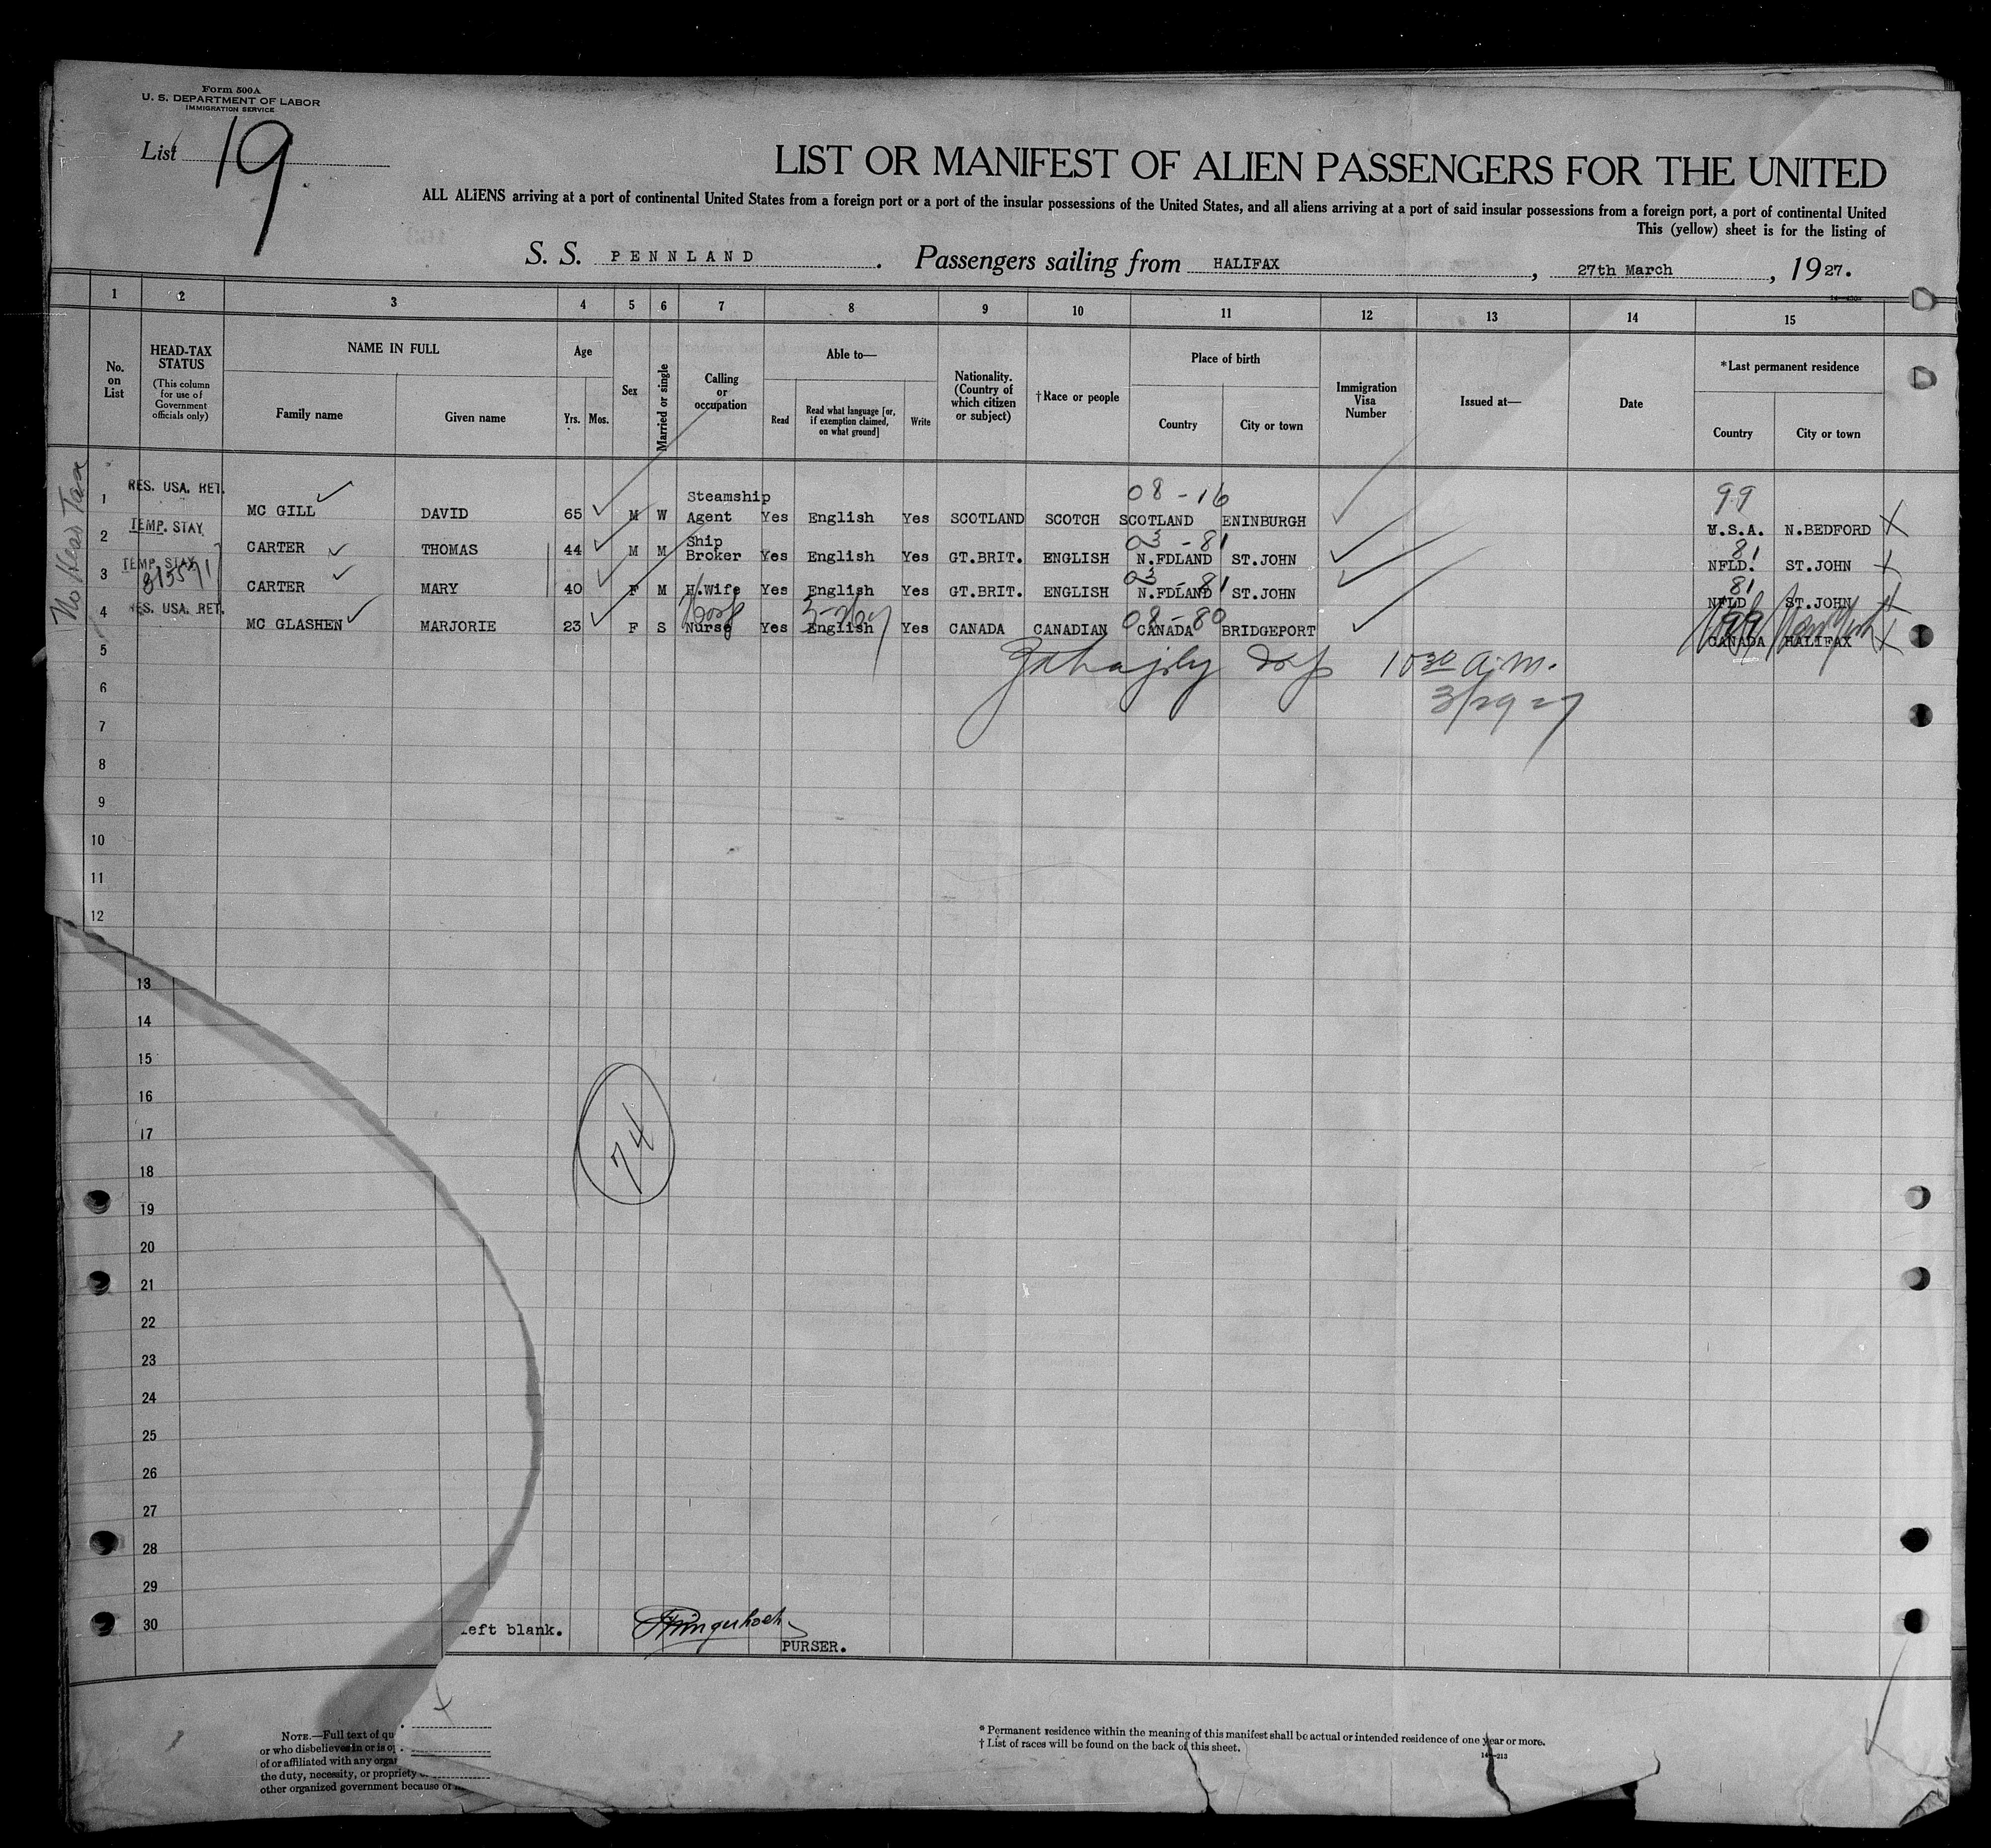 Form 500A
U. S. DEPARTMENT OF LABOR
IMMIGRATION SERVICE
List 19
LIST OR MANIFEST OF ALIEN PASSENGERS FOR THE UNITED
ALL ALIENS arriving at a port of continental United States from a foreign port or a port of the insular possessions of the United States, and all aliens arriving at a port of said insular possessions from a foreign port, a port of continental United
This (yellow) sheet is for the listing of
S. S. PENNLAND. Passengers sailing from HALIFAX, 27th March, 1927.
1 2 3 4 5 6 7 8 9 10 11 12 13 14 15
No. on List
HEAD-TAX STATUS
(This column for use of Government officials only)
NAME IN FULL
Family name Given name
Age
Yrs. Mos.
Sex
Married or single
Calling or occupation
Able to—
Read
Read what language [or, if exemption claimed, on what ground]
Write
Nationality. (Country of which citizen or subject)
†Race or people
Place of birth
Country City or town
Immigration Visa Number
Issued at—
Date
*Last permanent residence
Country City or town
No Head Tax
08-16 99
1 RES. USA. RET. MC GILL DAVID 65 M W Steamship Agent Yes English Yes SCOTLAND SCOTCH SCOTLAND ENINBURGH U.S.A. N.BEDFORD X
03-81 81
2 TEMP. STAY CARTER THOMAS 44 M M Ship Broker Yes English Yes GT.BRIT. ENGLISH N.FDLAND ST.JOHN NFLD. ST.JOHN X
03-81 81
3 TEMP. STAY CARTER MARY 40 F M H.Wife Yes English Yes GT.BRIT. ENGLISH N.FDLAND ST.JOHN NFLD ST.JOHN X
08-80 99
4 RES. USA. RET. MC GLASHEN MARJORIE 23 F S Nurse Yes English Yes CANADA CANADIAN CANADA BRIDGEPORT CANADA HALIFAX X
5
10 30 A.M.
6
3/29 27
7
8
9
10
11
12
13
14
15
16
17
74
18
19
20
21
22
23
24
25
26
27
28
29
30 left blank.
PURSER.
NOTE.—Full text of qu
or who disbelieves in or is o
of or affiliated with any organ
the duty, necessity, or propriety
other organized government because of
* Permanent residence within the meaning of this manifest shall be actual or intended residence of one year or more.
† List of races will be found on the back of this sheet.
14—213